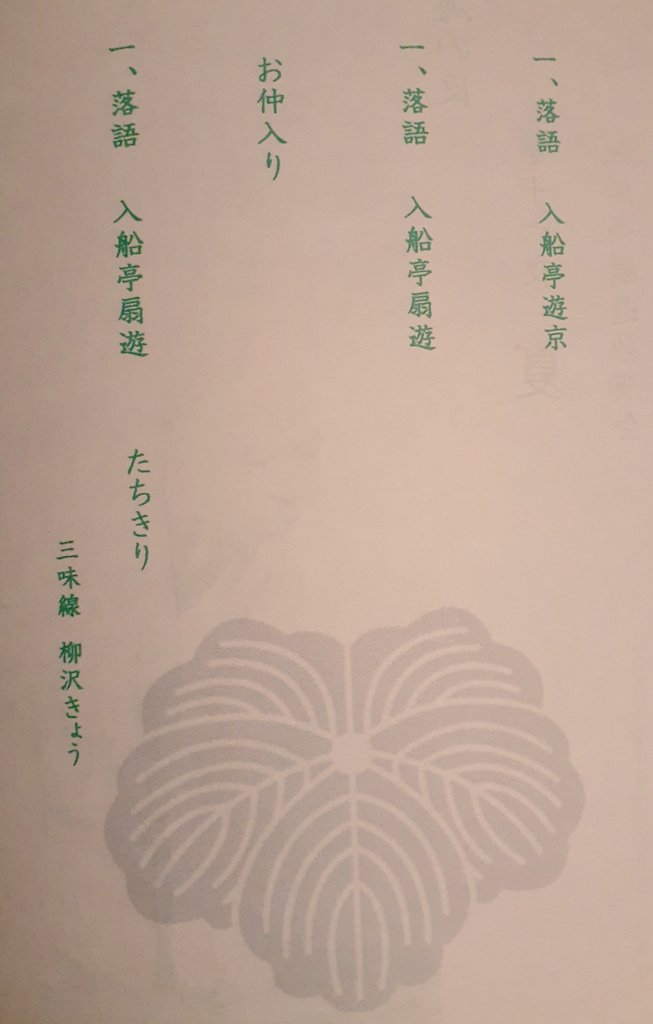 一、落語 入船亭遊京
一、落語 入船亭扇遊
お仲入り
一、落語 入船亭扇遊 たちきり
三味線 柳沢きょう